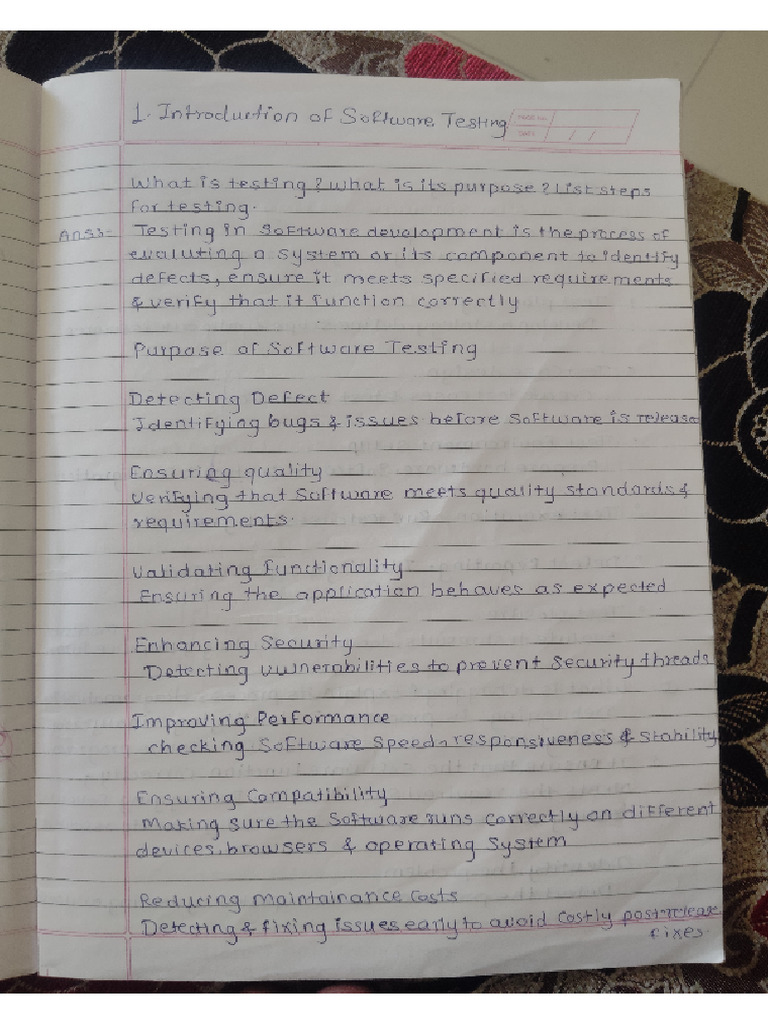 1. Introduction of Software Testing
PAGE NO.
DATE / /
What is testing? What is its purpose? List steps
for testing.
Ans:- Testing in Software development is the process of
evaluting a system or its component to identify
defects, ensure it meets specified requirements
& verify that it function correctly
Purpose of Software Testing
Detecting Defect
Identifying bugs & issues before Software is release
Ensuring quality
Verifying that Software meets quality standards &
requirements.
Validating functionality
Ensuring the application behaves as expected
Enhancing Security
Detecting vulnerabilities to prevent Security threads
Improving Performance
checking Software Speed, responsiveness & stability
Ensuring Compatibility
Making sure the Software runs correctly on different
devices, browsers & operating System
Reducing maintainance Costs
Detecting & fixing issues early to avoid costly post-release
fixes.